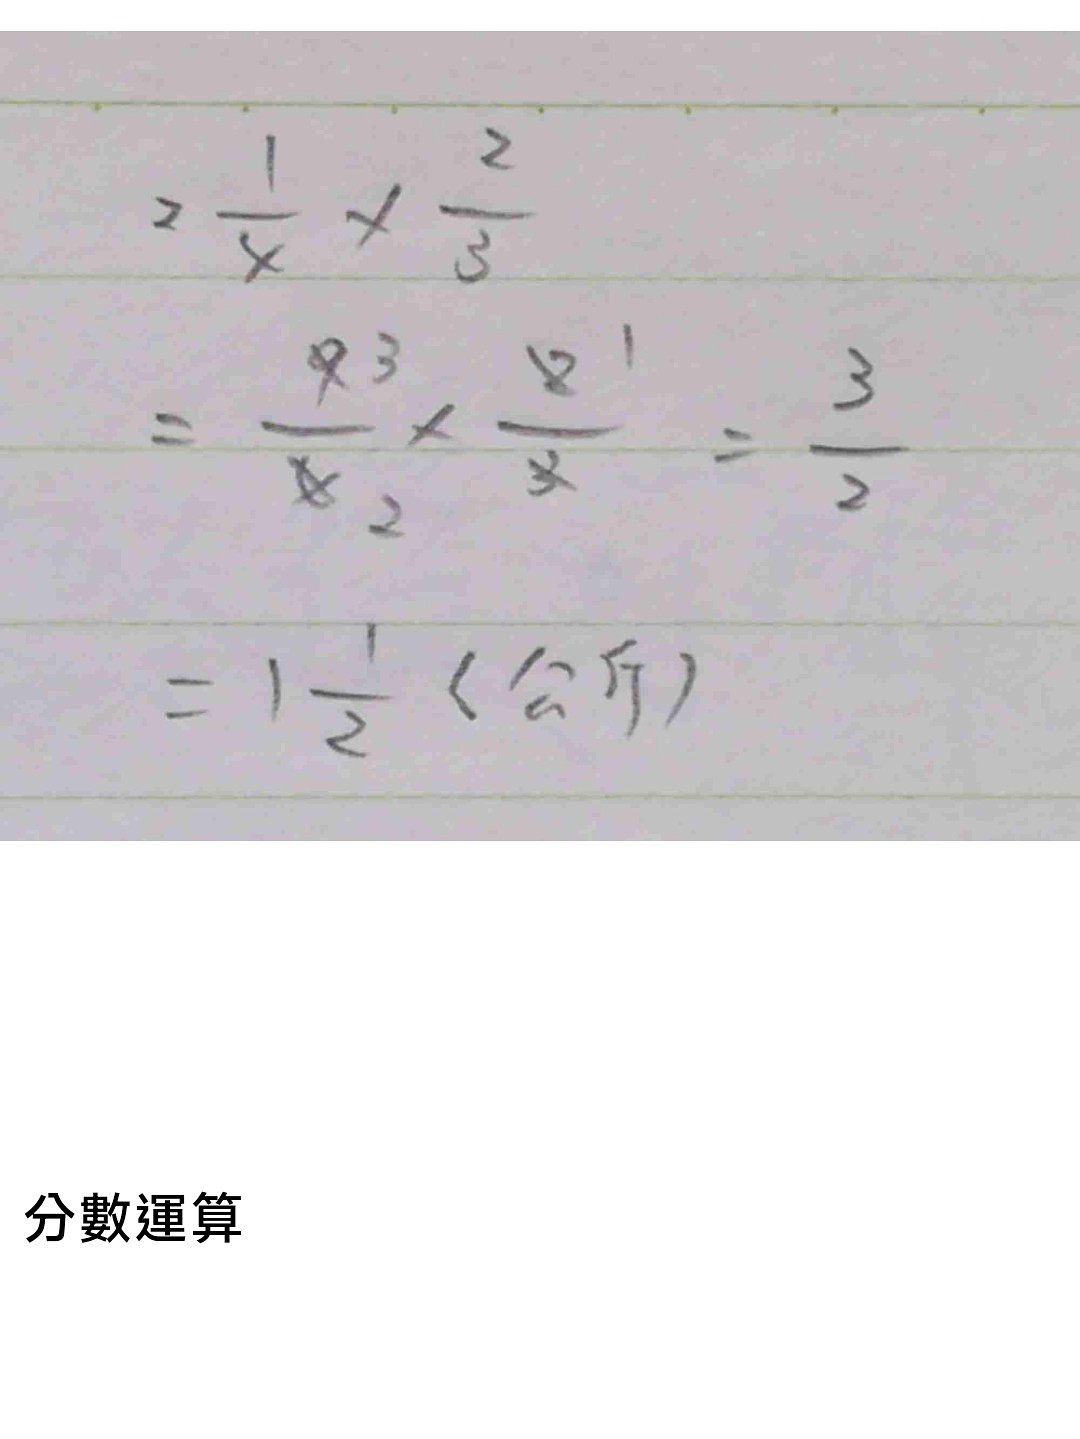 2 1/4 × 2/3
= 9 3/4 2 × 2 1/3 = 3/2
= 1 1/2 (公斤)
分數運算